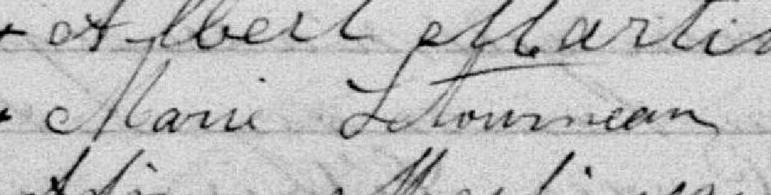 Albert Martin
Marie Letourneau